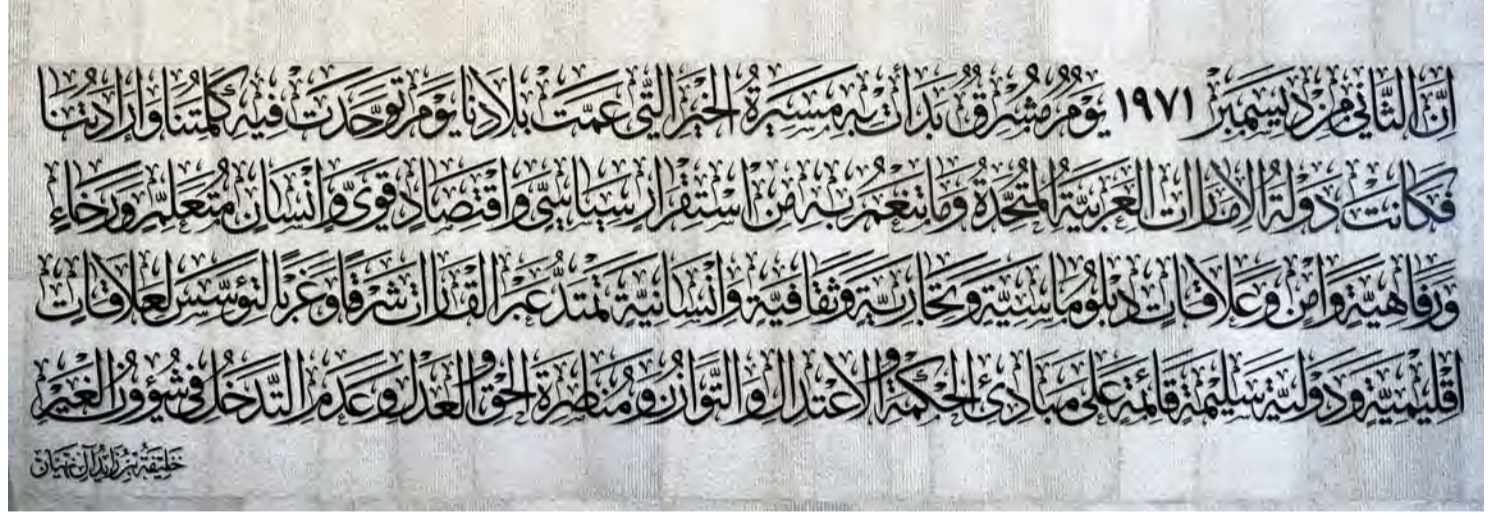 إن الثاني من ديسمبر ١٩٧١ يوم مشرق بدأت به مسيرة الخير التي عمت بلادنا يوم توحدت فيه كلمتنا وإرادتنا
فكانت دولة الإمارات العربية المتحدة وما تنعم به من استقرار سياسي واقتصاد قوي وإنسان متعلم ورخاء
ورفاهية وأمن وعلاقات دبلوماسية وتجارية وثقافية وإنسانية تمتد عبر القارات شرقا وغربا لتؤسس لعلاقات
إقليمية ودولية سليمة قائمة على مبادئ الحكمة والاعتدال والتوازن ومناصرة الحق والعدل وعدم التدخل في شؤون الغير
خليفة بن زايد آل نهيان